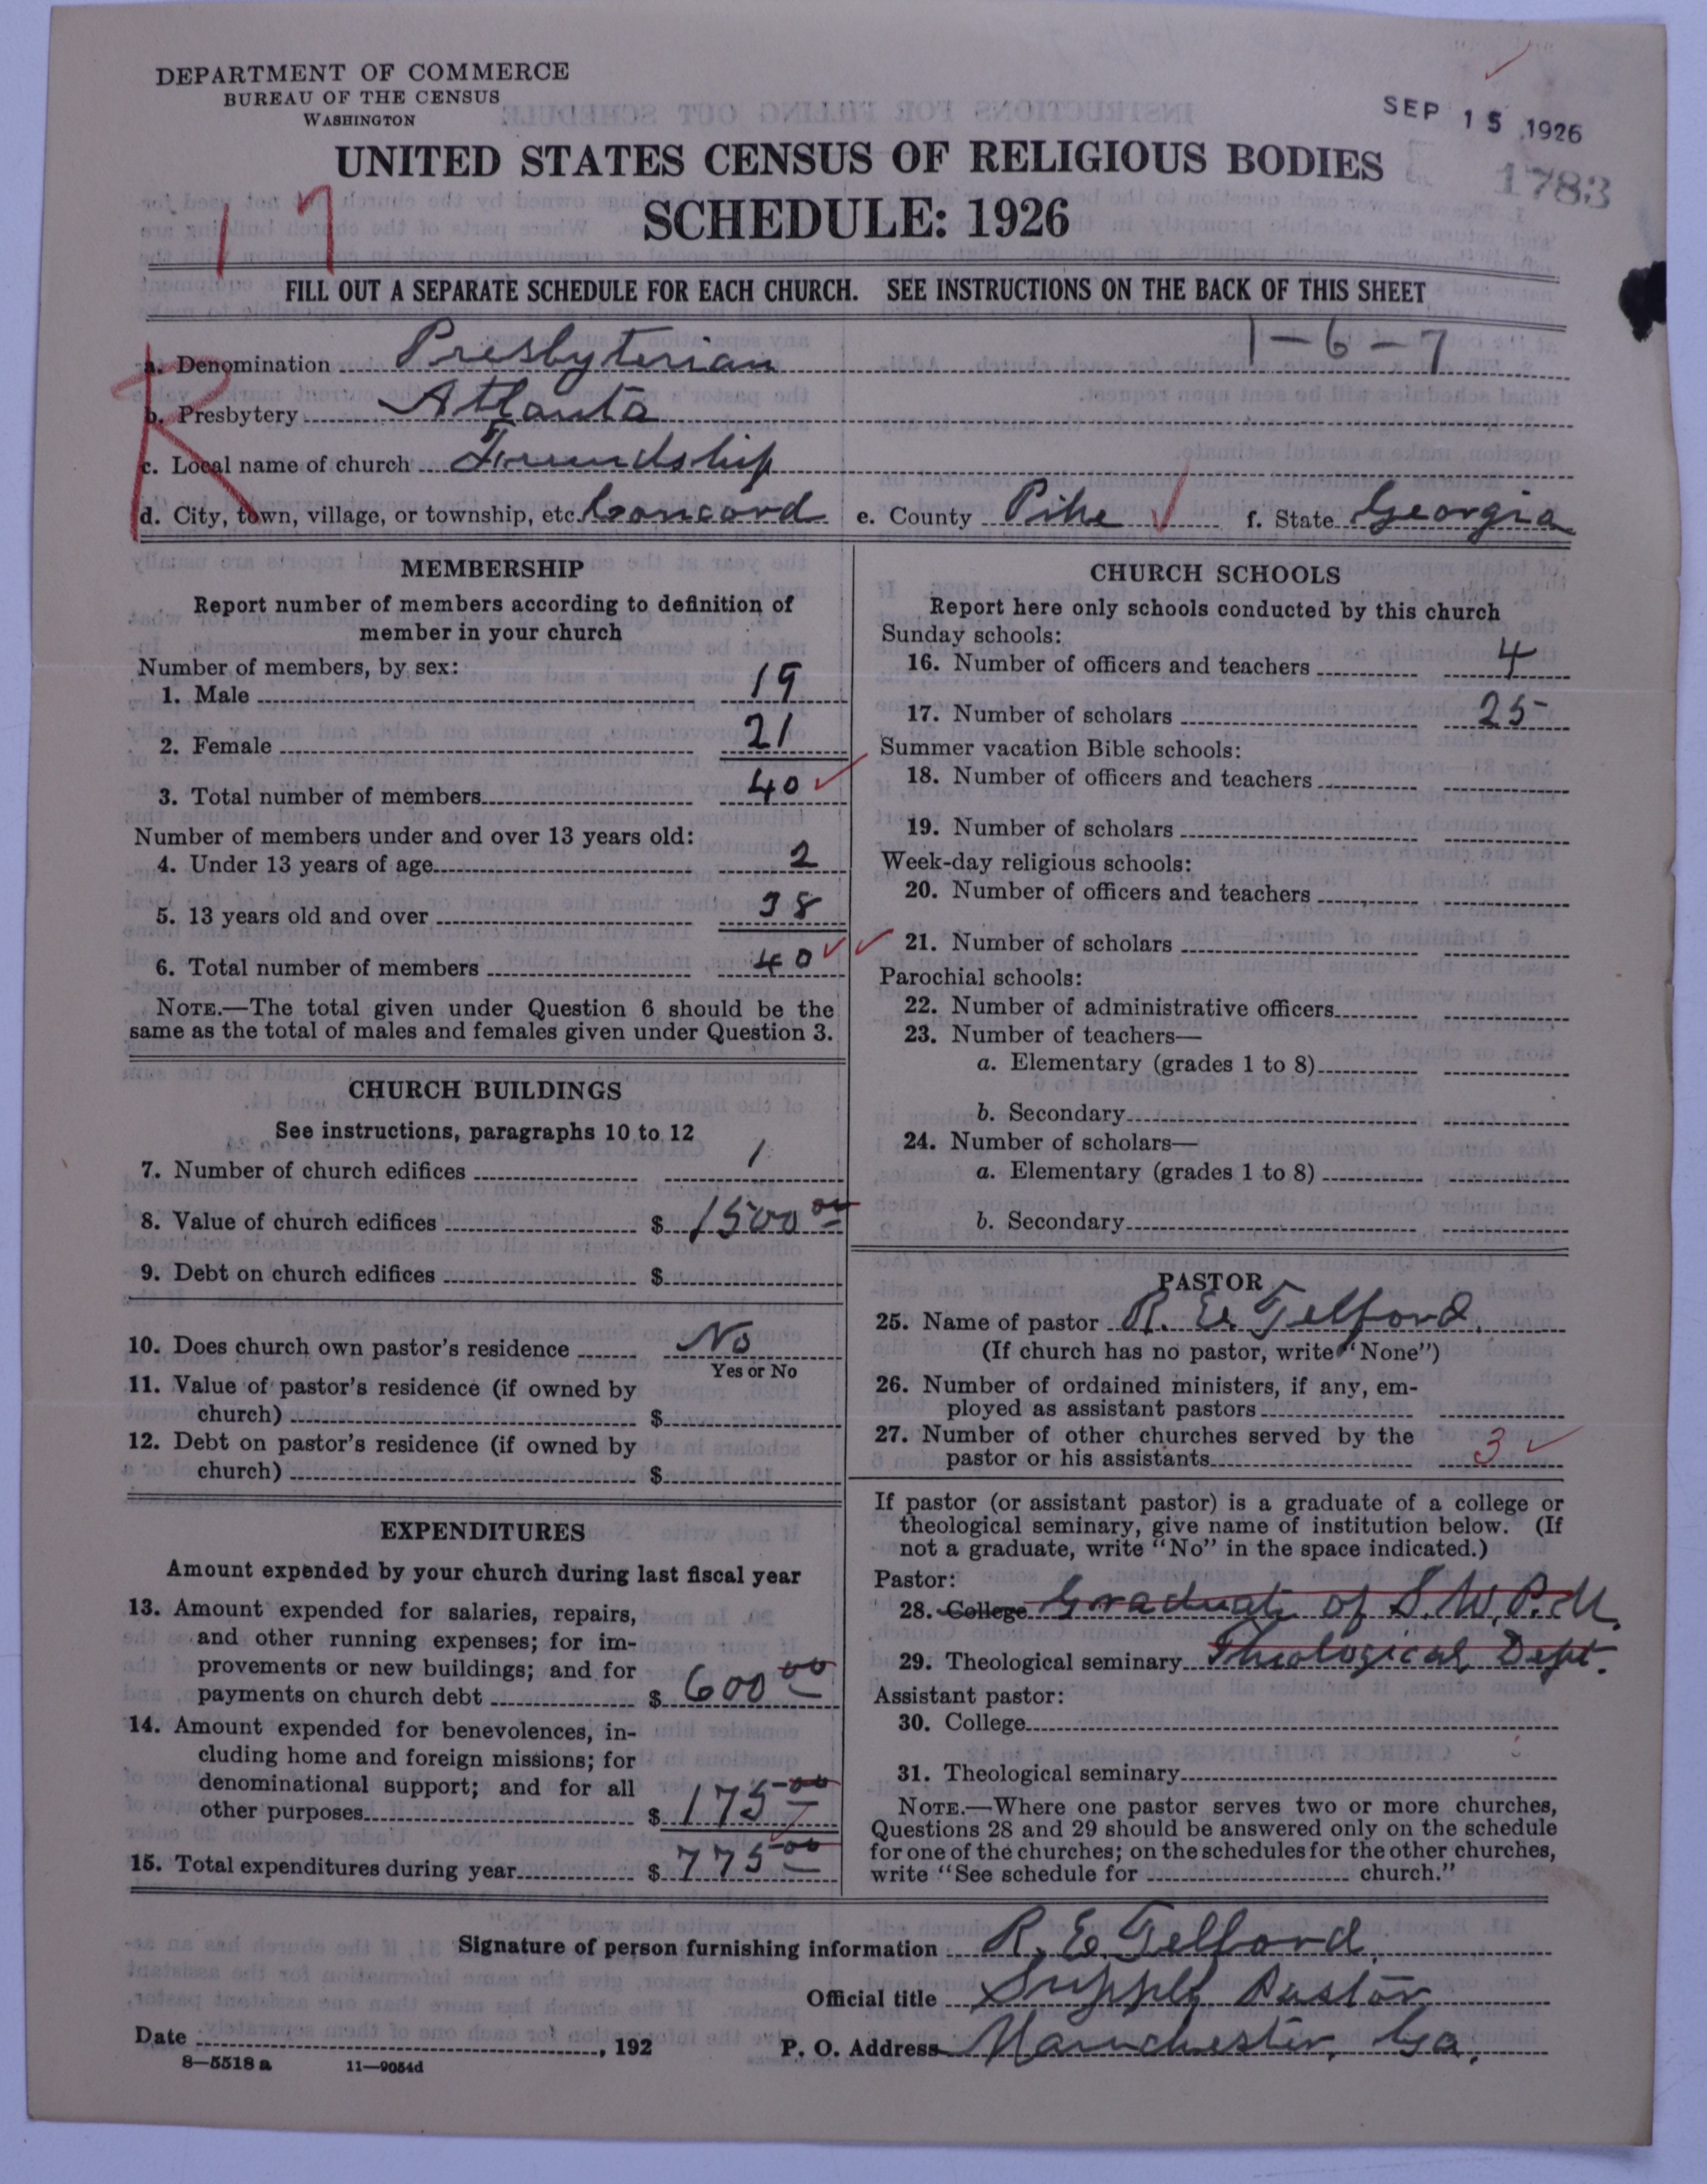 DEPARTMENT OF COMMERCE
BUREAU OF THE CENSUS
WASHINGTON
SEP 15 1926
1783
UNITED STATES CENSUS OF RELIGIOUS BODIES
SCHEDULE: 1926
17
FILL OUT A SEPARATE SCHEDULE FOR EACH CHURCH. SEE INSTRUCTIONS ON THE BACK OF THIS SHEET
1-6-7
R
a. Denomination Presbyterian
b. Presbytery Atlanta
c. Local name of church Friendship
d. City, town, village, or township, etc. Concord e. County Pike f. State Georgia
MEMBERSHIP
Report number of members according to definition of
member in your church
Number of members, by sex:
1. Male 19
2. Female 21
3. Total number of members 40
Number of members under and over 13 years old:
4. Under 13 years of age 2
5. 13 years old and over 38
6. Total number of members 40
NOTE.—The total given under Question 6 should be the
same as the total of males and females given under Question 3.
CHURCH BUILDINGS
See instructions, paragraphs 10 to 12
7. Number of church edifices 1
8. Value of church edifices $ 1500 00
9. Debt on church edifices $
10. Does church own pastor's residence No
Yes or No
11. Value of pastor's residence (if owned by
church) $
12. Debt on pastor's residence (if owned by
church) $
EXPENDITURES
Amount expended by your church during last fiscal year
13. Amount expended for salaries, repairs,
and other running expenses; for im-
provements or new buildings; and for
payments on church debt $ 600 00
14. Amount expended for benevolences, in-
cluding home and foreign missions; for
denominational support; and for all
other purposes $ 175 00
15. Total expenditures during year $ 775 00
CHURCH SCHOOLS
Report here only schools conducted by this church
Sunday schools:
16. Number of officers and teachers 4
17. Number of scholars 25
Summer vacation Bible schools:
18. Number of officers and teachers
19. Number of scholars
Week-day religious schools:
20. Number of officers and teachers
21. Number of scholars
Parochial schools:
22. Number of administrative officers
23. Number of teachers—
a. Elementary (grades 1 to 8)
b. Secondary
24. Number of scholars—
a. Elementary (grades 1 to 8)
b. Secondary
PASTOR
25. Name of pastor R. E. Telford.
(If church has no pastor, write "None")
26. Number of ordained ministers, if any, em-
ployed as assistant pastors
27. Number of other churches served by the
pastor or his assistants 3
If pastor (or assistant pastor) is a graduate of a college or
theological seminary, give name of institution below. (If
not a graduate, write "No" in the space indicated.)
Pastor:
28. College Graduate of S.W.P.U.
29. Theological seminary Theological Dept.
Assistant pastor:
30. College
31. Theological seminary
NOTE.—Where one pastor serves two or more churches,
Questions 28 and 29 should be answered only on the schedule
for one of the churches; on the schedules for the other churches,
write "See schedule for church."
Signature of person furnishing information R. E. Telford.
Official title Supply Pastor
Date , 192 P. O. Address Manchester, Ga.
8—5518 a 11—9054d